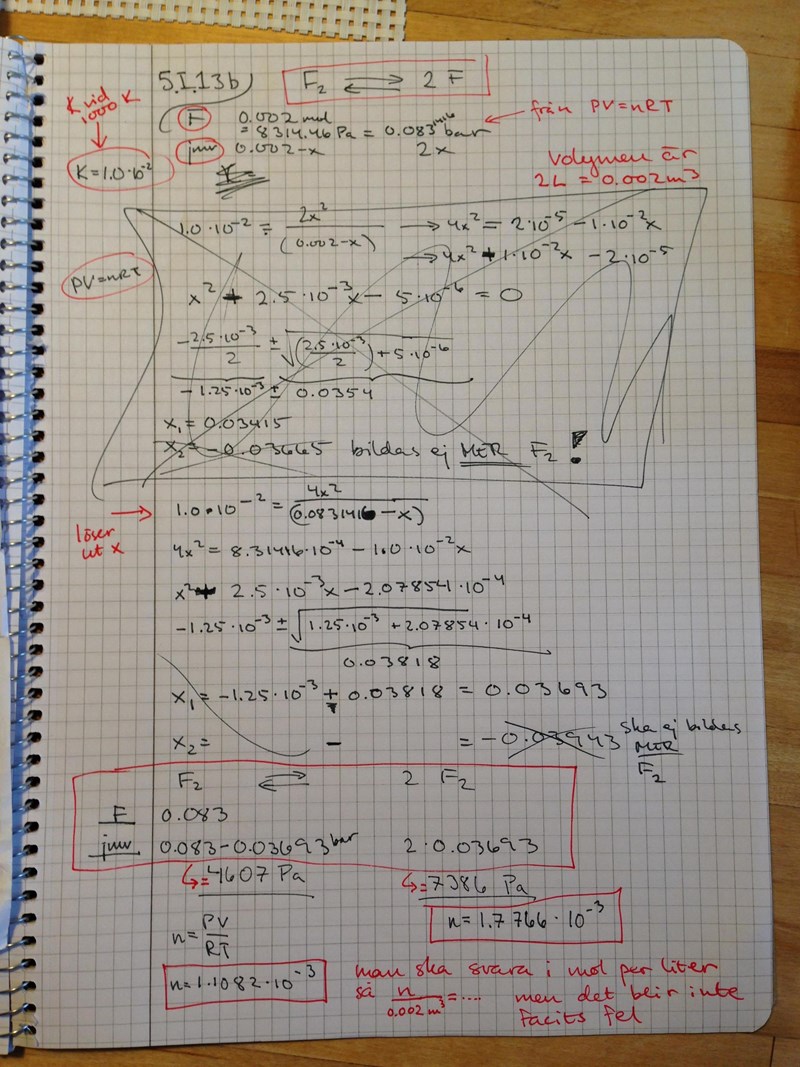 5.I.13b) F₂ ⇌ 2 F
K vid
1000 K
K=1.0·10⁻²
F 0.002 mol
= 8314.46 Pa = 0.083 bar
från PV=nRT
jmv 0.002-x 2x
Volymen är
2L = 0.002m³
PV=nRT
1.0·10⁻² = 2x²/(0.002-x) → 4x² = 2·10⁻⁵ - 1·10⁻²x
→ 4x² + 1·10⁻²x - 2·10⁻⁵
x² + 2.5·10⁻³x - 5·10⁻⁶ = 0
-2.5·10⁻³/2 ± √((2.5·10⁻³/2)+5·10⁻⁶)
-1.25·10⁻³ ± 0.0354
x₁ = 0.03415
x₂ = -0.03665 bildas ej MER F₂!
löser
ut x
→ 1.0·10⁻² = 4x²/(0.0831416-x)
4x² = 8.31416·10⁻⁴ - 1.0·10⁻²x
x² + 2.5·10⁻³x - 2.078541·10⁻⁴
-1.25·10⁻³ ± √(1.25·10⁻³ + 2.07854·10⁻⁴)
0.03818
x₁ = -1.25·10⁻³ + 0.03818 = 0.03693
x₂ = - = -0.03943 ska ej bildas
MER
F₂
F₂ ⇌ 2 F₂
F 0.083
jmv 0.083-0.03693 bar 2·0.03693
↳ = 4607 Pa ↳ = 7386 Pa
n = PV/RT
n = 1.7766·10⁻³
n = 1.1082·10⁻³
man ska svara i mol per liter
så n/0.002m³ = .... men det blir inte
facits fel